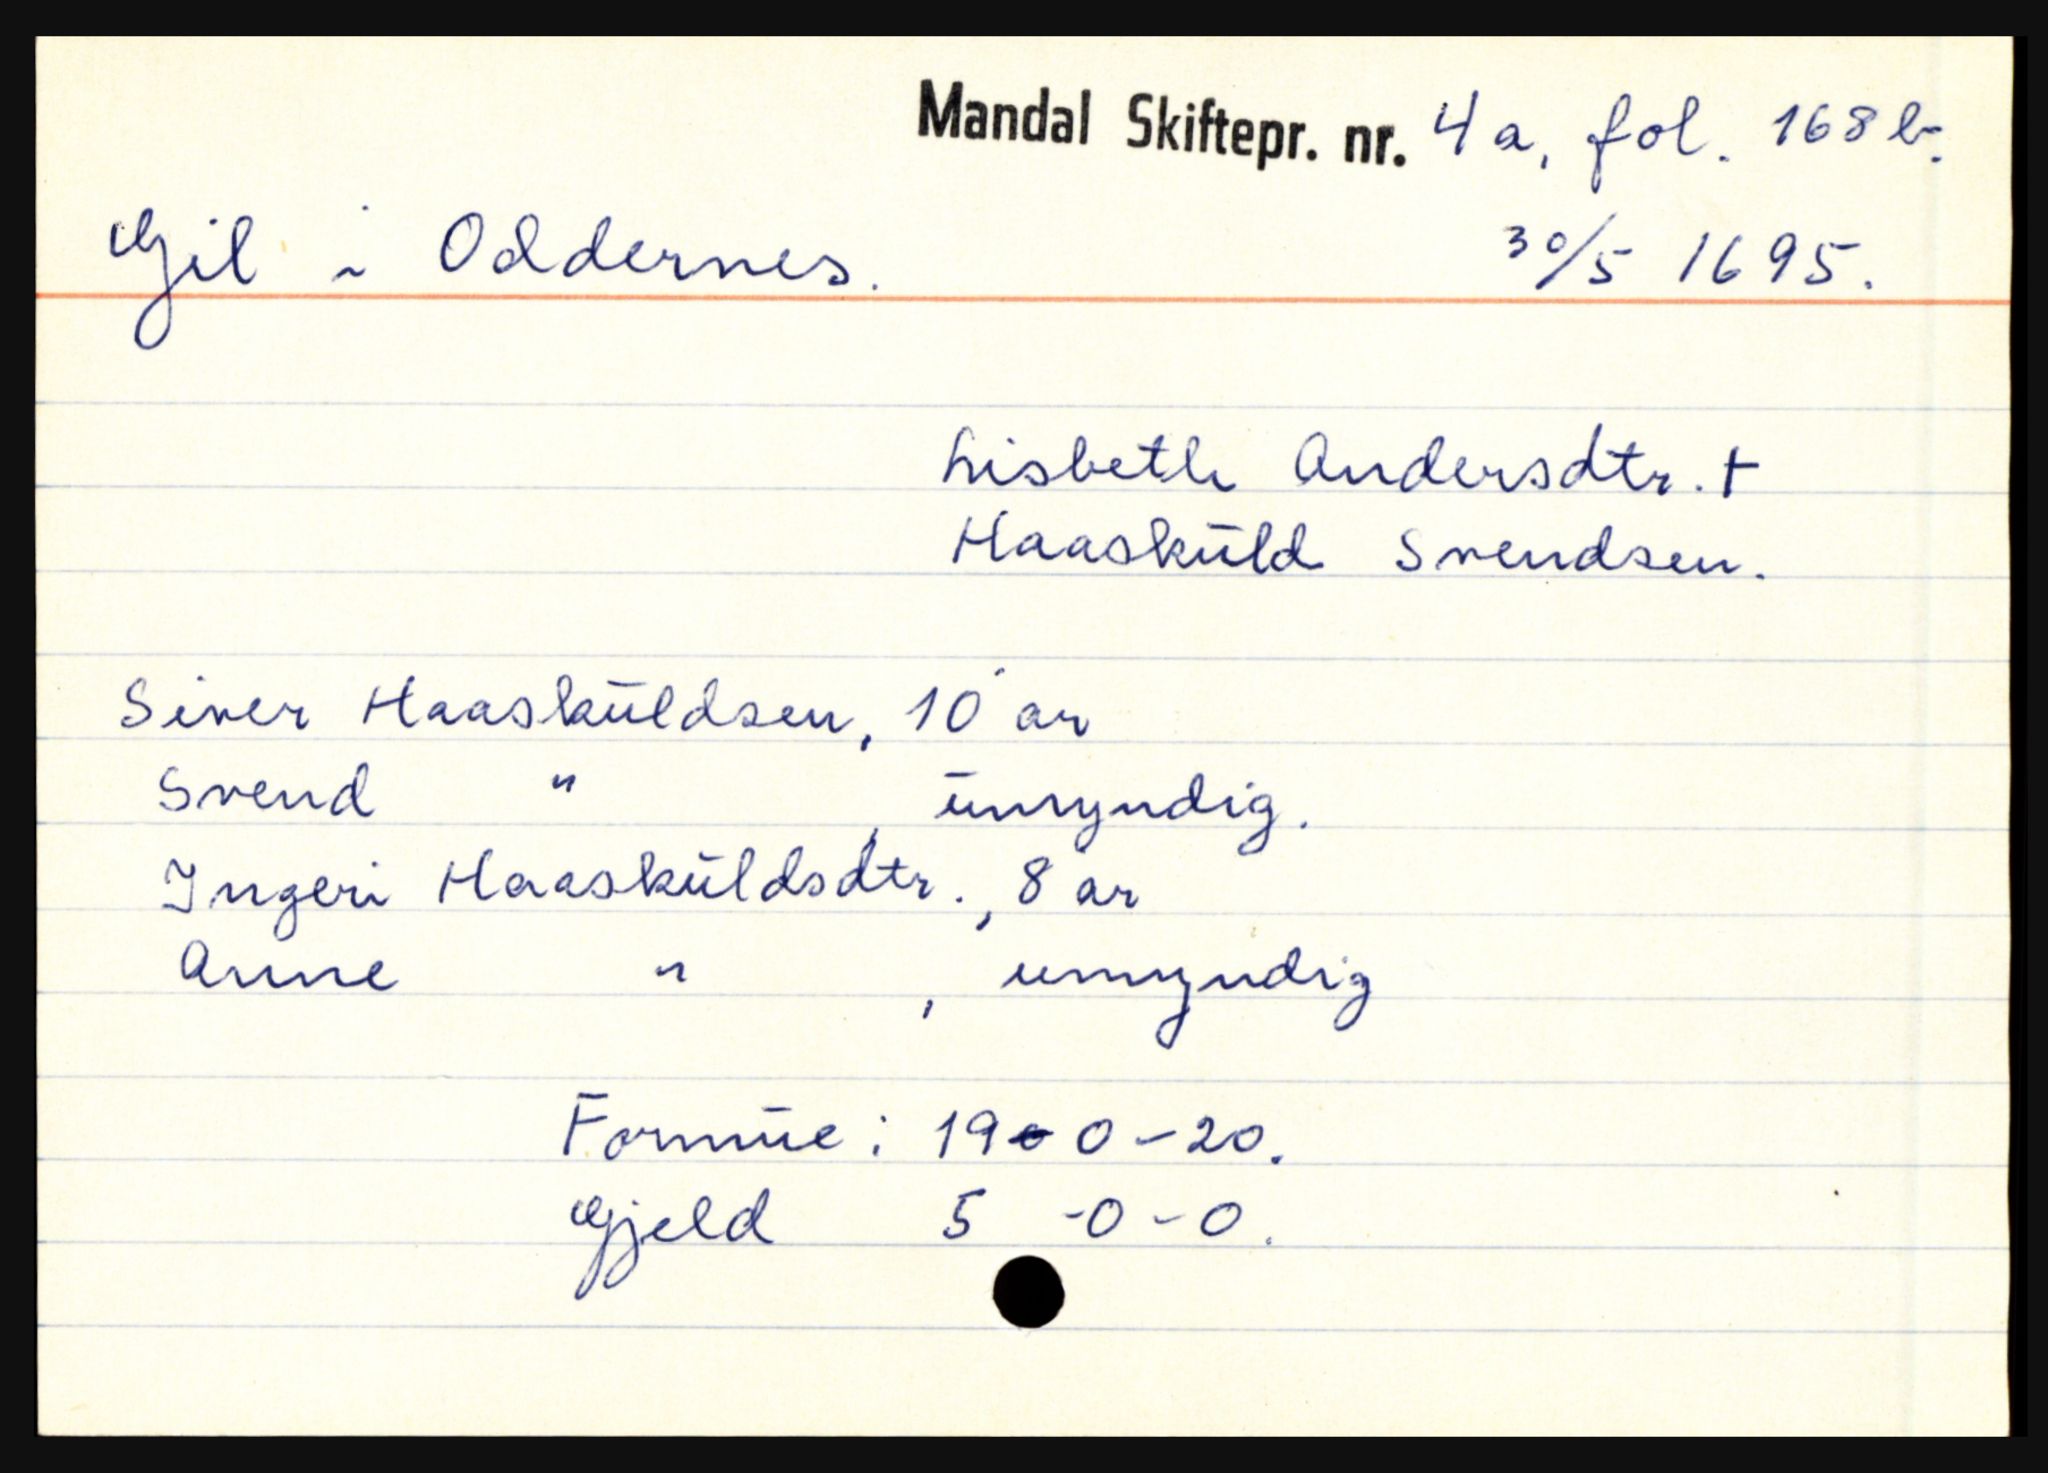 Mandal Skiftepr. nr. 4a, fol. 168b.
Gil i Oddernes. 30/5 1695.
Lisbeth Andersdtr. +
Haaskuld Svendsen.
Siver Haaskuldsen, 10 år
Svend " , umyndig.
Ingeri Haaskuldsdtr., 8 år
Anne " , umyndig
Formue: 19-0-20.
Gjeld 5 -0-0.